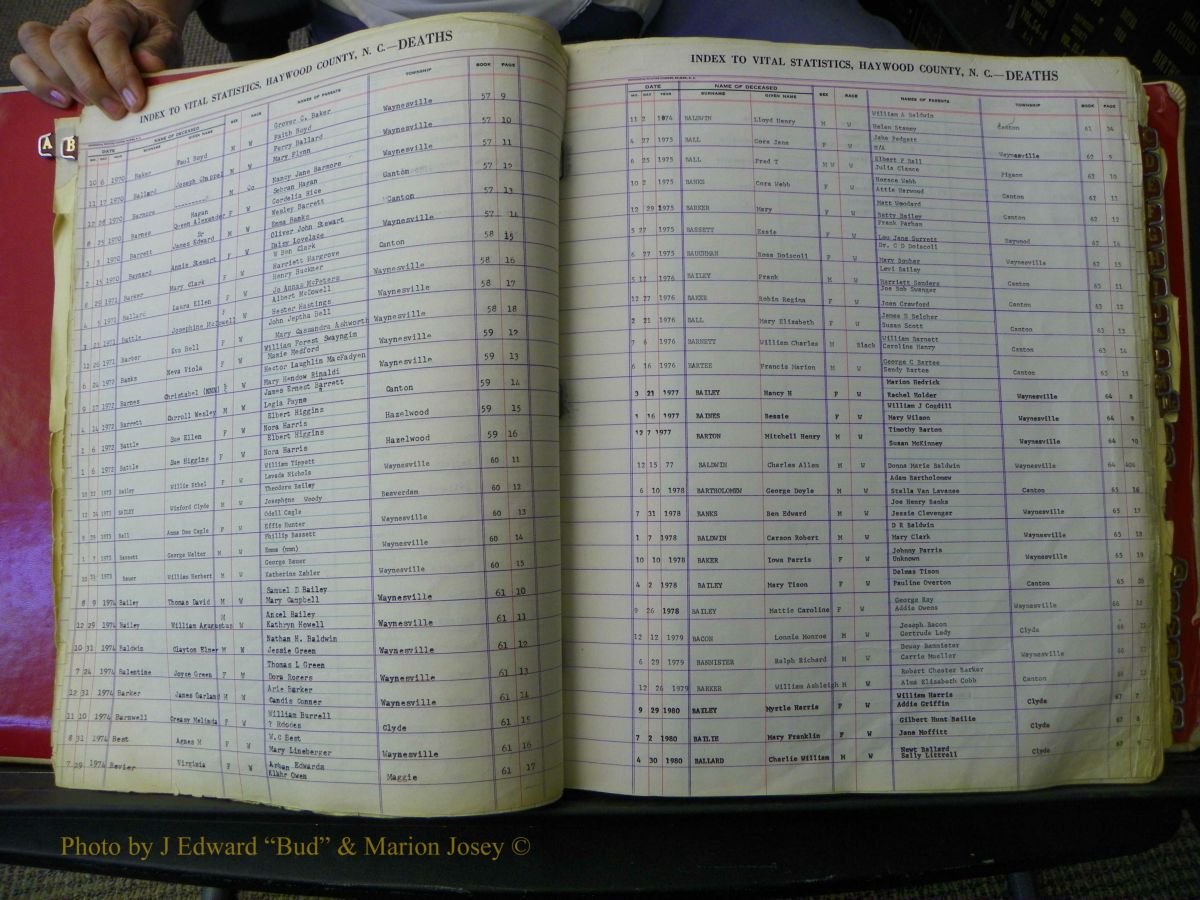 INDEX TO VITAL STATISTICS, HAYWOOD COUNTY, N. C.—DEATHS
DATE NAME OF DECEASED SEX RACE NAMES OF PARENTS TOWNSHIP BOOK PAGE
10 6 1970 Baker Paul Boyd M W Grover C. Baker Waynesville 57 9
Faith Boyd
11 17 1970 Ballard Joseph M W Perry Ballard Waynesville 57 10
Mary Flynn
1970 Barnore M Nancy Jane Barmore Waynesville 57 11
8 25 1970 Barnes Hagan Queen Alexander F W Sebran Hagan Canton 57 12
Cordelia Rice
1970 Barrett James Edward Sr M W Wesley Barrett Canton 57 13
Emma Banks
2 15 1970 Baynard Annie Stewart F W Oliver John Stewart Waynesville 57 14
Daisy Lovelace
8 29 1971 Barker Mary Clark F W W Ben Clark Canton 58 15
Harriett Hargrove
1971 Ballard Laura Ellen F W Henry Buckner Waynesville 58 16
Jo Annas McPeters
1971 Battle Josephine McDowell F W Albert McDowell Waynesville 58 17
Hester Hastings
12 25 1971 Barber Eva Bell F W John Jeptha Bell Waynesville 58 18
Mary Cassandra Ashworth
6 24 1972 Banks Neva Viola F W William Forest Swayngim Waynesville 59 12
Masie Medford
9 17 1972 Barnes Christabel (NMN) F W Hector Laughlin MacFadyen Waynesville 59 13
Mary Hendow Rinaldi
4 14 1972 Barrett Carroll Wesley M W James Ernest Barrett Canton 59 14
Legia Payne
1 6 1972 Battle Sue Ellen F W Elbert Higgins Hazelwood 59 15
Nora Harris
1 6 1972 Battle Sue Higgins F W Elbert Higgins Hazelwood 59 16
Nora Harris
10 22 1973 Bailey Willie Ethel F W William Tippett Waynesville 60 11
Lavada Nichols
12 24 1973 BAILEY Winford Clyde M W Theodore Bailey Beaverdam 60 12
Josephene Woody
8 29 1973 Ball Anna Dee Cagle F W Odell Cagle Waynesville 60 13
Effie Hunter
1 7 1973 Bassett George Walter M W Phillip Bassett Waynesville 60 14
Emma (nmn)
10 31 1973 Bauer William Herbert M W George Bauer Waynesville 60 15
Katherine Zahler
8 9 1974 Bailey Thomas David M W Samuel D Bailey Waynesville 61 10
Mary Campbell
12 29 1974 Bailey William Augustus M W Ancel Bailey Waynesville 61 11
Kathryn Howell
10 31 1974 Baldwin Clayton Elmer M W Nathan H. Baldwin Waynesville 61 12
Jessie Green
7 24 1974 Balentine Joyce Green F W Thomas L Green Waynesville 61 13
Dora Rogers
12 31 1974 Barker James Garland M W Arle Barker Waynesville 61 14
Candis Conner
11 10 1974 Barnwell Creasy Melinda F W William Burrell Clyde 61 15
? Rhodes
8 31 1974 Best Agnes M F W W.C Best Waynesville 61 16
Mary Lineberger
7 29 1974 Bevier Virginia F W Arban Edwards Maggie 61 17
Klahr Owen
INDEX TO VITAL STATISTICS, HAYWOOD COUNTY, N. C.—DEATHS
DATE NAME OF DECEASED SEX RACE NAMES OF PARENTS TOWNSHIP BOOK PAGE
MO. DAY YEAR SURNAME GIVEN NAME
11 2 1974 BALDWIN Lloyd Henry M W William A Baldwin Canton 61 34
Helen Stamey
4 27 1975 BALL Cora Jene F W Jake Padgett Waynesville 62 9
N/A
6 25 1975 BALL Fred T M W W Elbert F Ball Pigeon 62 10
Julia Clance
10 2 1975 BANKS Cora Webb F W Horace Webb Canton 62 11
Attie Harwood
12 29 1975 BARKER Mary F W Matt Woodard Canton 62 12
Betty Bailey
5 27 1975 BASSETT Essie F W Frank Parhan Haywood 62 14
Lou Jane Surrett
6 27 1975 BAUGHMAN Rosa Doiscoll F W Dr. C D Doiscoll Waynesville 62 15
Mary Souher
5 17 1976 BAILEY Frank M W Levi Bailey Canton 63 11
Harriett Sanders
12 27 1976 BAKER Robin Regina F W Joe Bob Swanger Canton 63 12
Joan Crawford
2 21 1976 BALL Mary Elizabeth F W James D Belcher Canton 63 13
Susan Scott
7 6 1976 BARNETT William Charles M Black William Barnett Canton 63 14
Caroline Henry
6 16 1976 BARTEE Francis Marion M W George C Bartee Canton 63 15
Sendy Bartee
3 21 1977 BAILEY Nancy H F W Marion Hedrick Waynesville 64 8
Rachel Holder
1 16 1977 BAINES Bessie F W William J Cogdill Waynesville 64 9
Mary Wilson
12 7 1977 BARTON Mitchell Henry M W Timothy Barton Waynesville 64 10
Susan McKinney
12 15 77 BALDWIN Charles Allen M W Donna Marie Baldwin Waynesville 64 406
6 10 1978 BARTHOLOMEW George Doyle M W Adam Bartholomew Canton 65 16
Stella Van Lavanae
7 31 1978 BANKS Ben Edward M W Joe Henry Banks Waynesville 65 17
Jessie Clevenger
1 7 1978 BALDWIN Carson Robert M W D R Baldwin Canton 65 18
Mary Clark
10 10 1978 BAKER Iowa Parris F W Johnny Parris Waynesville 65 19
Unknown
4 2 1978 BAILEY Mary Tison F W Dalmas Tison Canton 65 20
Pauline Overton
9 26 1978 BAILEY Mattie Caroline F W George Ray Waynesville 66
Addie Owens
12 12 1979 BACON Lonnie Monroe M W Joseph Bacon Clyde 66
Gertrude Lady
6 29 1979 BANNISTER Ralph Richard M W Deway Bannister Waynesville 66
Carrie Moeller
12 26 1979 BARKER William Ashleigh M W Robert Chester Barker Canton 66
Alma Elizabeth Cobb
9 29 1980 BAILEY Myrtle Harris F W William Harris Clyde 67 7
Addie Griffin
7 2 1980 BAILIE Mary Franklin F W Gilbert Hunt Bailie Clyde 67 8
Jane Moffitt
4 30 1980 BALLARD Charlie William M W Newt Ballard Clyde 67 9
Sally Littrell
A B
Photo by J Edward “Bud” & Marion Josey ©